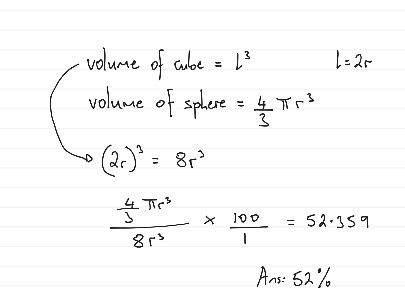 volume of cube = l³ l = 2r
volume of sphere = 4/3 πr³
(2r)³ = 8r³
4/3 πr³ / 8r³ × 100/1 = 52.359
Ans: 52%